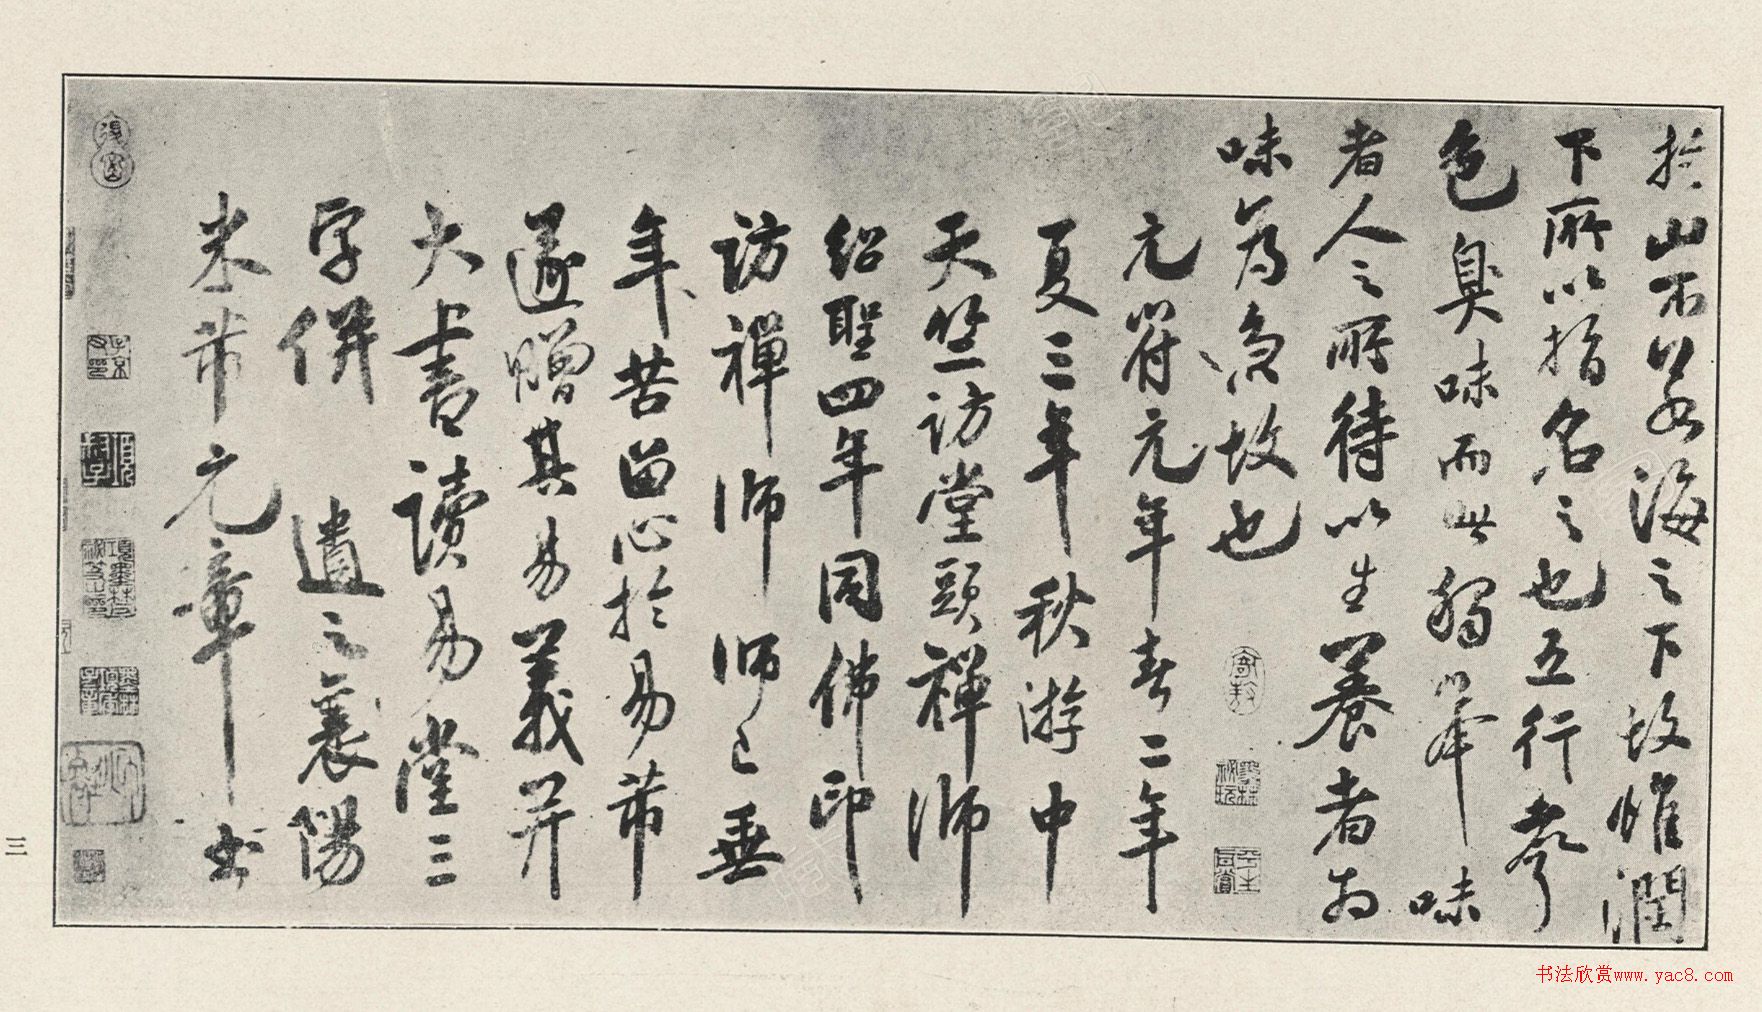 於山不若海之下故惟潤
下所以指名之也五行孝
色臭味而此獨舉味
者人之所待以生養者ね
味為急故也
元符元年春二年
夏三年秋游中
天竺訪堂頭禪師
紹聖四年同佛印
訪禪師師已垂
年苦留心於易芾
遂贈其易義并
大書讀易堂三
字併遺之襄陽
米芾元章書
三
书法欣赏www.yac8.com